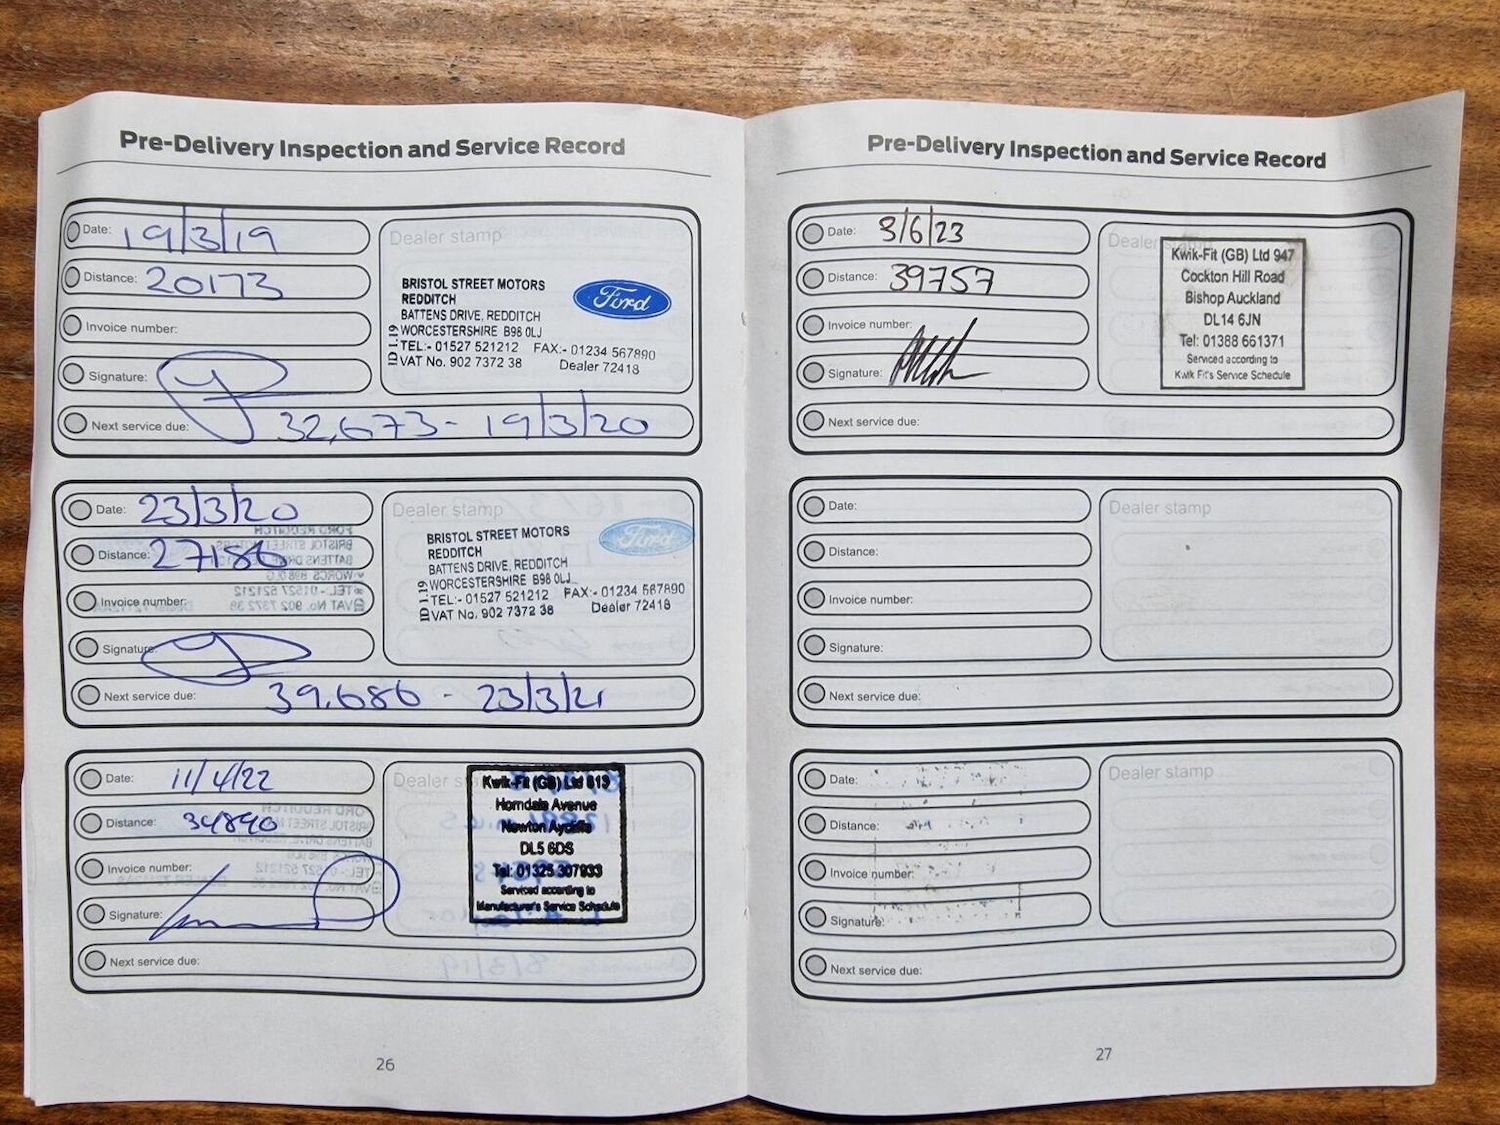 Pre-Delivery Inspection and Service Record
Date: 19/3/19
Distance: 20173
Invoice number:
Signature:
Next service due: 32,673 - 19/3/20
Dealer stamp
BRISTOL STREET MOTORS
REDDITCH
BATTENS DRIVE, REDDITCH
WORCESTERSHIRE B98 0LJ
TEL:- 01527 521212 FAX:- 01234 567890
VAT No. 902 7372 38 Dealer 72418
ID 1.19
Ford
Date: 23/3/20
Distance: 27186
Invoice number:
Signature:
Next service due: 39,686 - 23/3/21
Dealer stamp
BRISTOL STREET MOTORS
REDDITCH
BATTENS DRIVE, REDDITCH
WORCESTERSHIRE B98 0LJ
TEL:- 01527 521212 FAX:- 01234 567890
VAT No. 902 7372 38 Dealer 72418
ID 1.19
Ford
Date: 11/4/22
Distance: 34890
Invoice number:
Signature:
Next service due:
Dealer stamp
Kwik-Fit (GB) Ltd 613
Horndale Avenue
Newton Aycliffe
DL5 6DS
Tel: 01325 307933
Serviced according to
Manufacturer's Service Schedule
26
Pre-Delivery Inspection and Service Record
Date: 8/6/23
Distance: 39757
Invoice number:
Signature:
Next service due:
Dealer stamp
Kwik-Fit (GB) Ltd 947
Cockton Hill Road
Bishop Auckland
DL14 6JN
Tel: 01388 661371
Serviced according to
Kwik Fit's Service Schedule
Date:
Distance:
Invoice number:
Signature:
Next service due:
Dealer stamp
Date:
Distance:
Invoice number:
Signature:
Next service due:
Dealer stamp
27